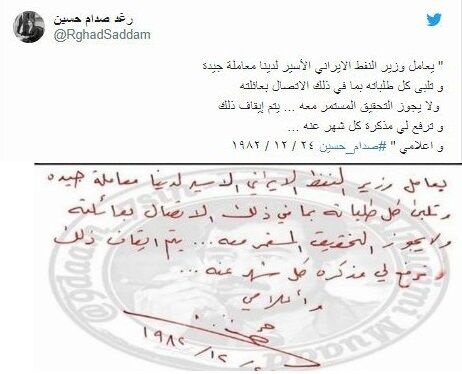 رغد صدام حسين
@RghadSaddam
" يعامل وزير النفط الايراني الأسير لدينا معاملة جيدة
و تلبى كل طلباته بما في ذلك الاتصال بعائلته
ولا يجوز التحقيق المستمر معه ... يتم إيقاف ذلك
و ترفع لي مذكرة كل شهر عنه ...
و اعلامي " #صدام_حسين ٢٤ / ١٢ / ١٩٨٢
يعامل وزير النفط الايراني الاسير لدينا معاملة جيده
وتلبى كل طلباته بما في ذلك الاتصال بعائلته
ولا يجوز التحقيق المستمر معه ... يتم ايقاف ذلك
وترفع لي مذكره كل شهر عنه ...
وأعلامي
١٩٨٢ / ١٢ /